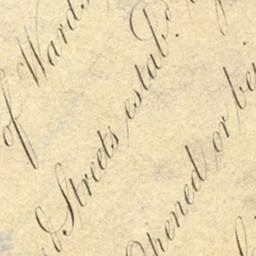 of Wards
& Streets estabd.
Opened or